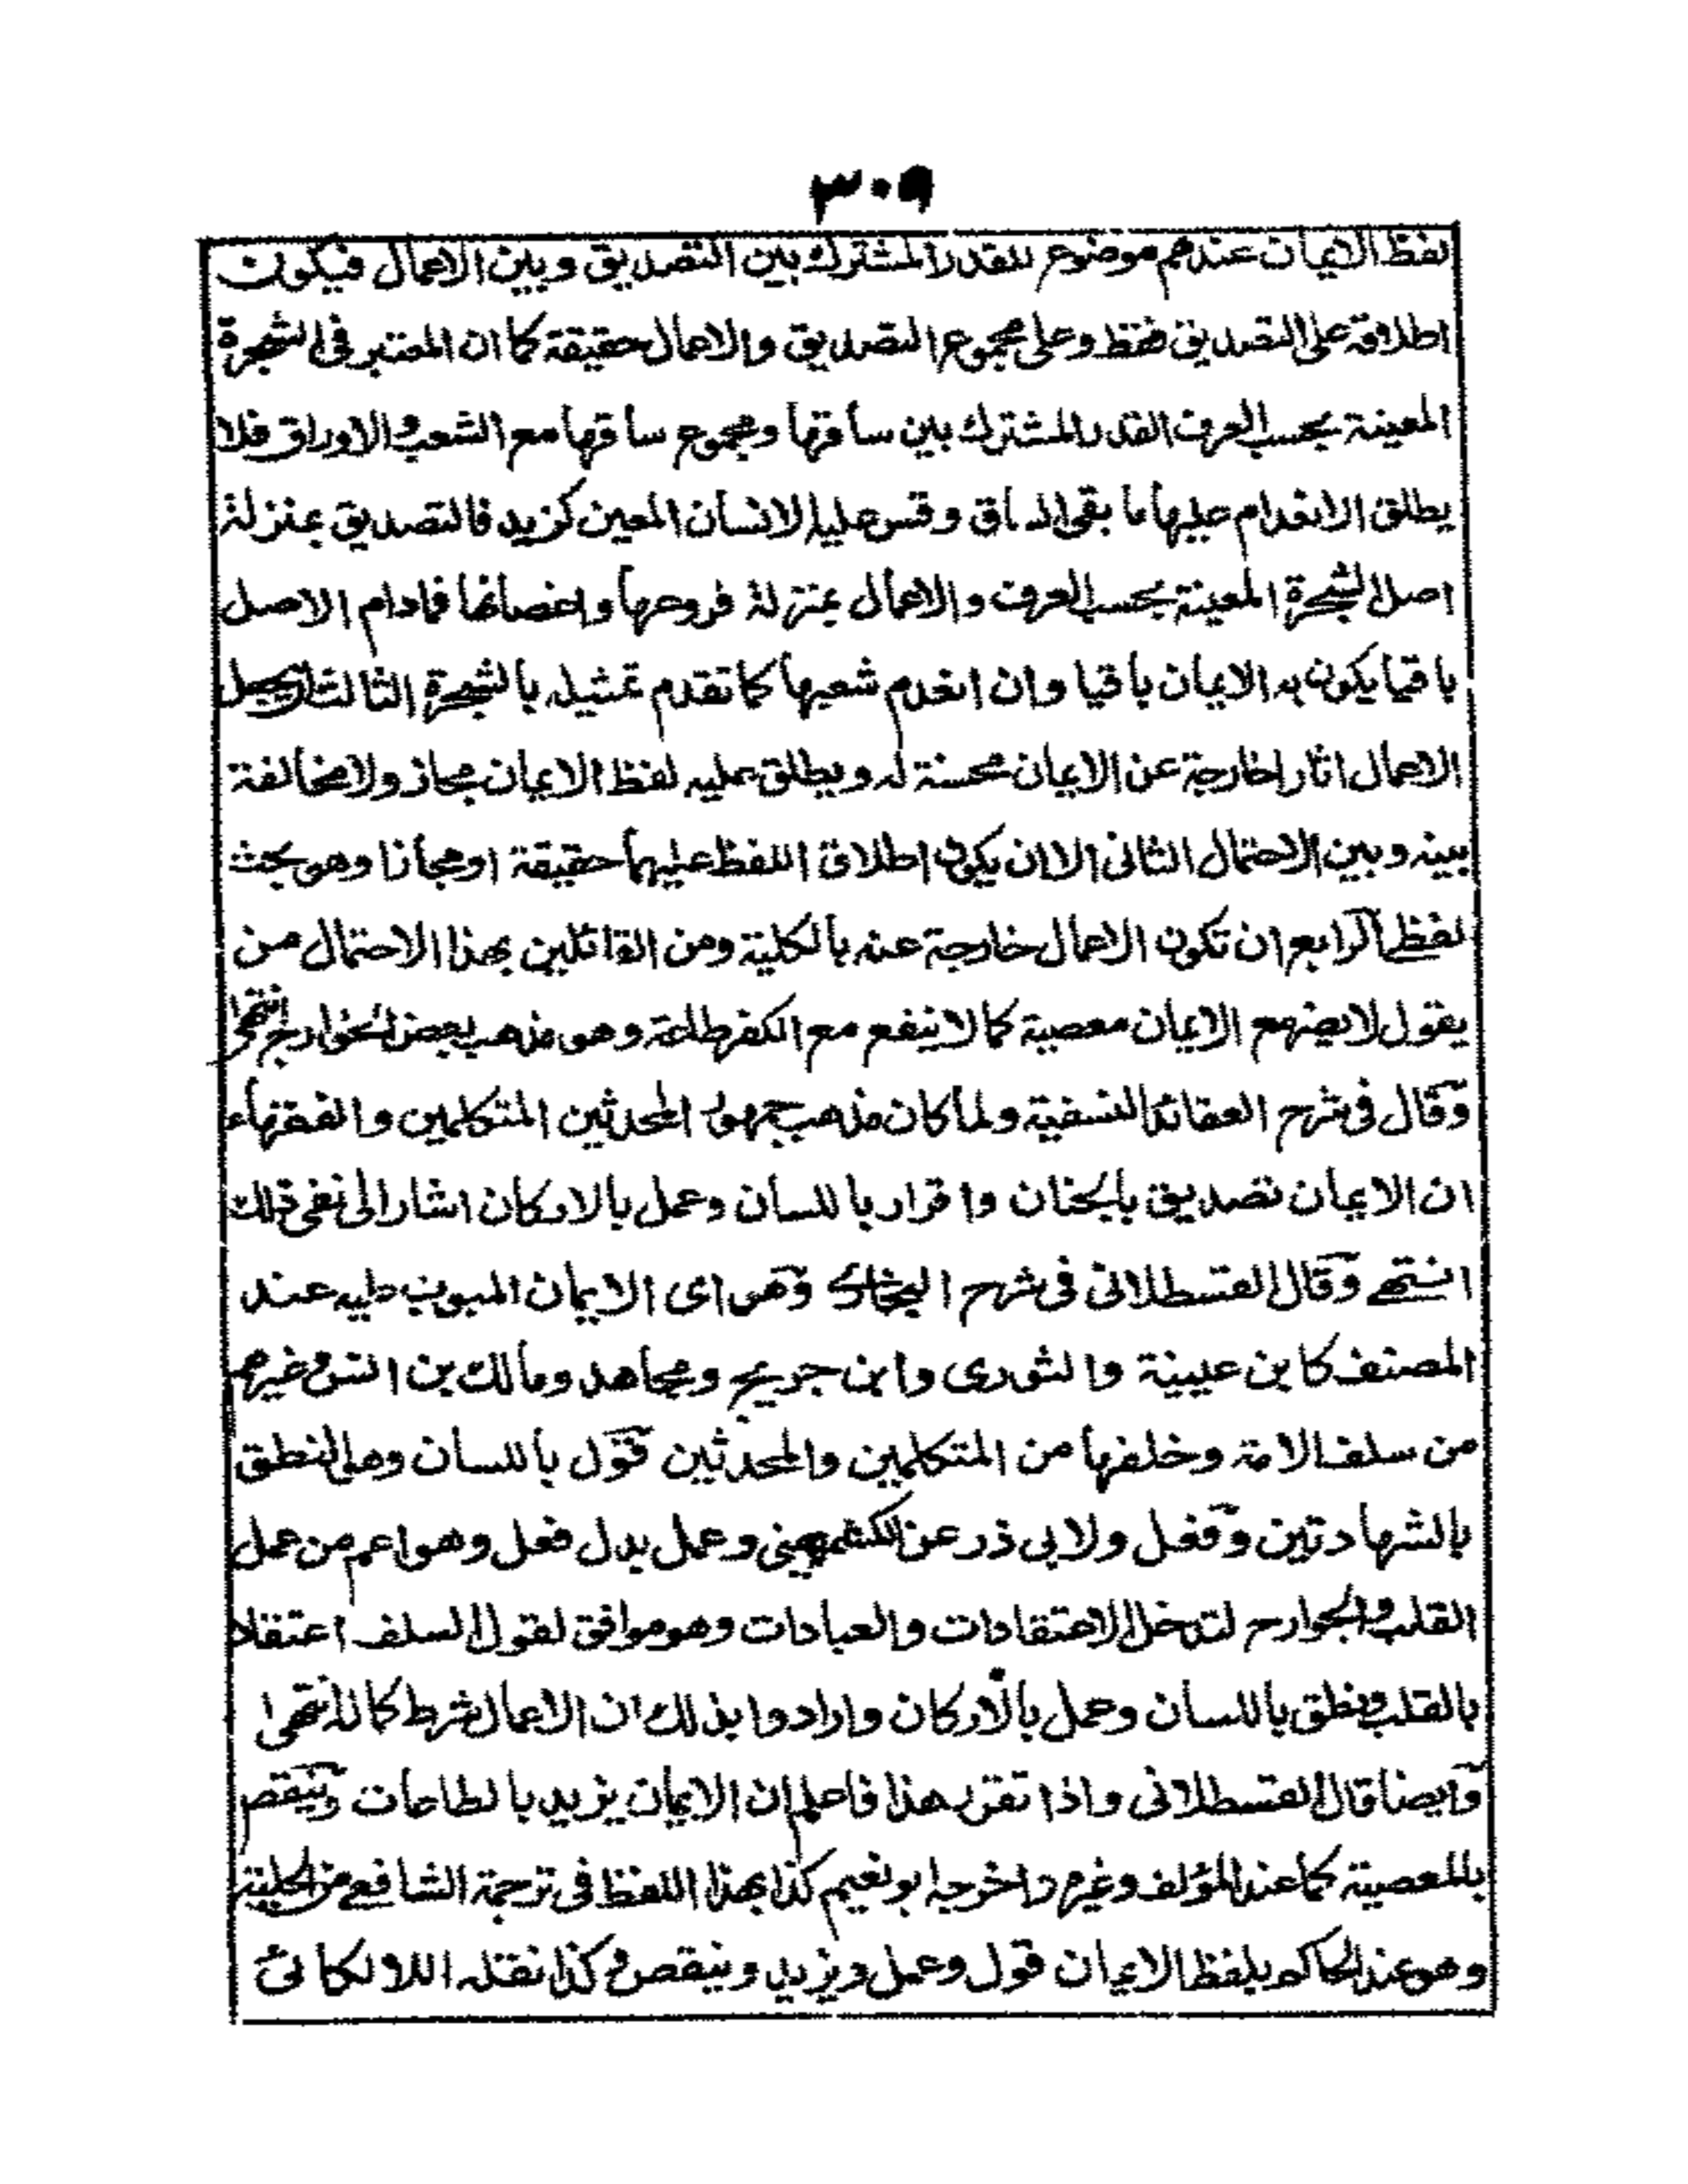 ٣٠٩
لفظ الايمان عندهم موضوع للقدر المشترك بين التصديق وبين الاعمال فيكون
اطلاقه على التصديق فقط وعلى مجموع التصديق والاعمال حقيقة كما ان المعتبر في الشجرة
المعينة بحسب العرف القدر المشترك بين ساقها ومجموع ساقها مع الشعب والاوراق فلا
يطلق الانعدام عليها ما بقى الساق وقس عليه الانسان المعين كزيد فالتصديق بمنزلة
اصل الشجرة المعينة بحسب العرف والاعمال بمنزلة فروعها واغصانها فمادام الاصل
باقيا يكون به الايمان باقيا وان انعدم شعبها كما تقدم تمثيله بالشجرة الثالث ان يجعل
الاعمال اثارا خارجة عن الايمان محسنة له ويطلق عليه لفظ الايمان مجاز ولا مخالفة
بينه وبين الاحتمال الثانى الا ان يكون اطلاق اللفظ عليهما حقيقة او مجازا وهو بحث
لفظى الرابع ان تكون الاعمال خارجة عنه بالكلية ومن القائلين بهذا الاحتمال من
يقول لا يضر مع الايمان معصية كما لا ينفع مع الكفر طاعة وهو مذهب بعض الخوارج انتهى
وقال فى شرح العقائد النسفية ولما كان مذهب جمهور المحدثين المتكلمين والفقهاء
ان الايمان تصديق بالجنان واقرار باللسان وعمل بالاركان اشار الى نفى ذلك
انتهى وقال القسطلانى فى شرح البخارى وهو اى الايمان المبوب عليه عند
المصنف كابن عيينة والثورى وابن جريج ومجاهد ومالك بن انس وغيرهم
من سلف الامة وخلفها من المتكلمين والمحدثين قول باللسان وهو النطق
بالشهادتين وفعل ولابى ذر عن الكشميهنى وعمل بدل فعل وهو اعم من عمل
القلب والجوارح لتدخل الاعتقادات والعبادات وهو موافق لقول السلف اعتقاد
بالقلب ونطق باللسان وعمل بالاركان وارادوا بذلك ان الاعمال شرط كماله انتهى
وايضا قال القسطلانى واذا تقرر هذا فاعلم ان الايمان يزيد بالطاعات وينقص
بالمعصية كما عند المؤلف وغيره واخرجه ابو نعيم كذا بهذا اللفظ فى ترجمة الشافعى من الحلية
وهو عند الحاكم بلفظ الايمان قول وعمل ويزيد وينقص وكذا نقله اللالكائى